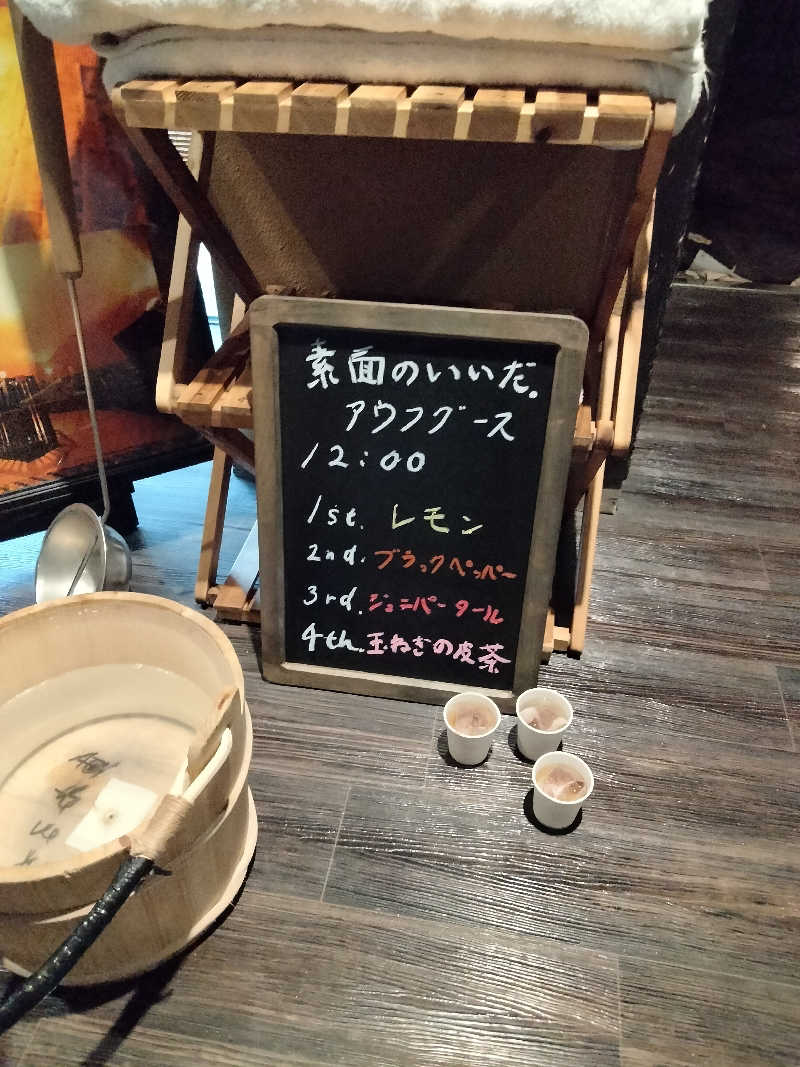 素面のいいだ。
アウフグース
12:00
1st. レモン
2nd. ブラックペッパー
3rd. ジュニパータール
4th. 玉ねぎの皮茶